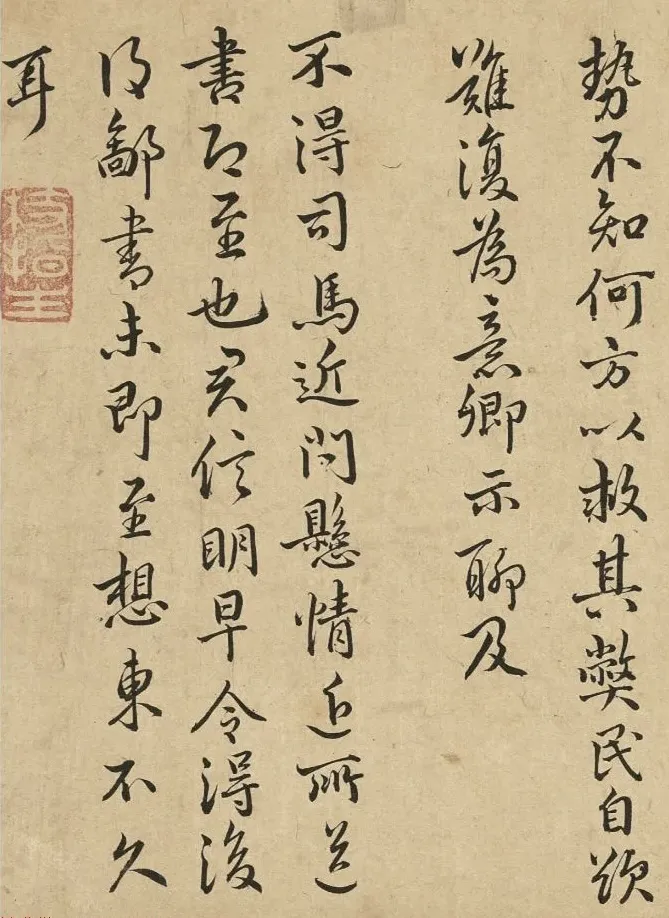 勢不知何方以救其弊民自
難復為意卿示聊及
不得司馬近問懸情近所送
書即至也君信明早令得後
得鄙書未即至想東不久
耳